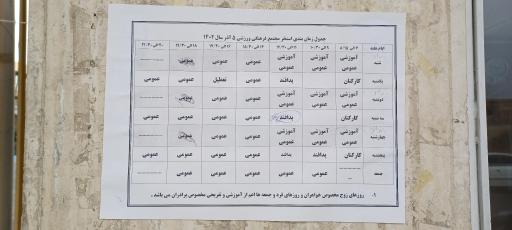 جدول زمان بندی استخر مجتمع فرهنگی ورزشی ۵ آذر سال ۱۴۰۲
ایام هفته
شنبه آموزشی عمومی آموزشی عمومی آموزشی عمومی عمومی عمومی عمومی
یکشنبه کارکنان پدافند عمومی تعطیل عمومی عمومی
دوشنبه آموزشی عمومی آموزشی عمومی آموزشی عمومی عمومی عمومی عمومی
سه شنبه کارکنان عمومی پدافند عمومی عمومی عمومی عمومی
چهارشنبه آموزشی عمومی آموزشی عمومی آموزشی عمومی عمومی عمومی عمومی
پنجشنبه کارکنان پدافند پدافند عمومی عمومی عمومی عمومی
جمعه عمومی عمومی عمومی عمومی عمومی عمومی
۱- روزهای زوج مخصوص خواهران و روزهای فرد و جمعه ها اعم از آموزشی و تفریحی مخصوص برادران می باشد .